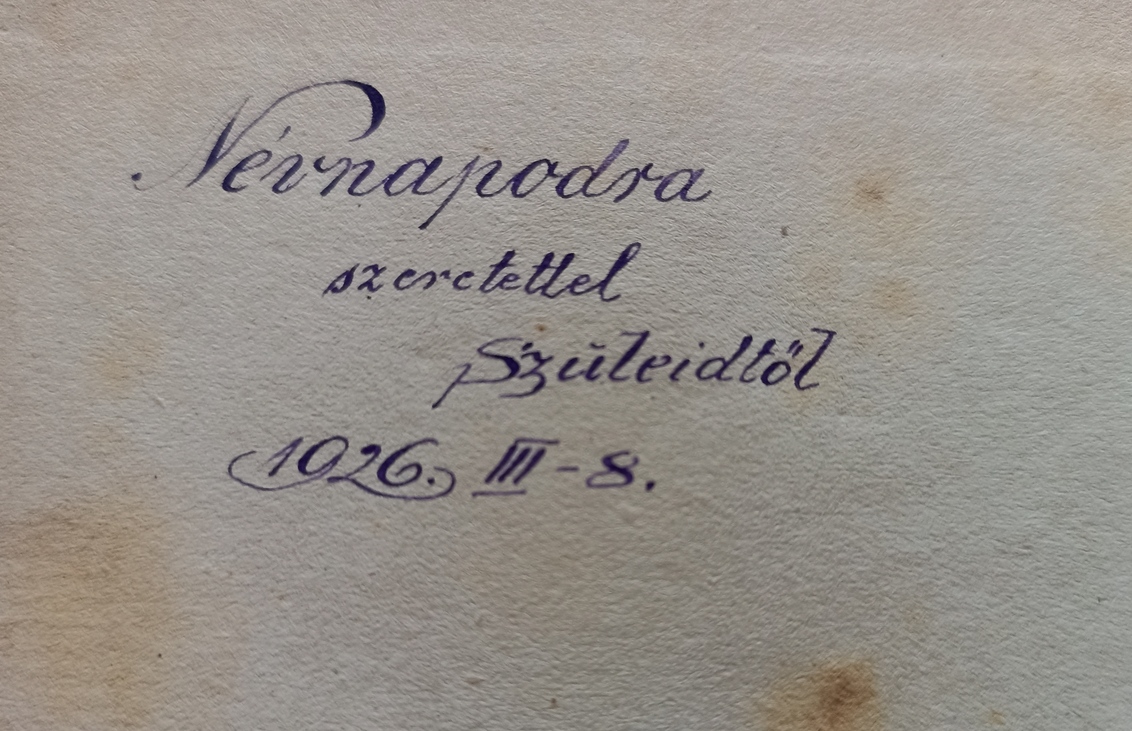 Névnapodra
szeretettel
Szüleidtől
1926. III - 8.